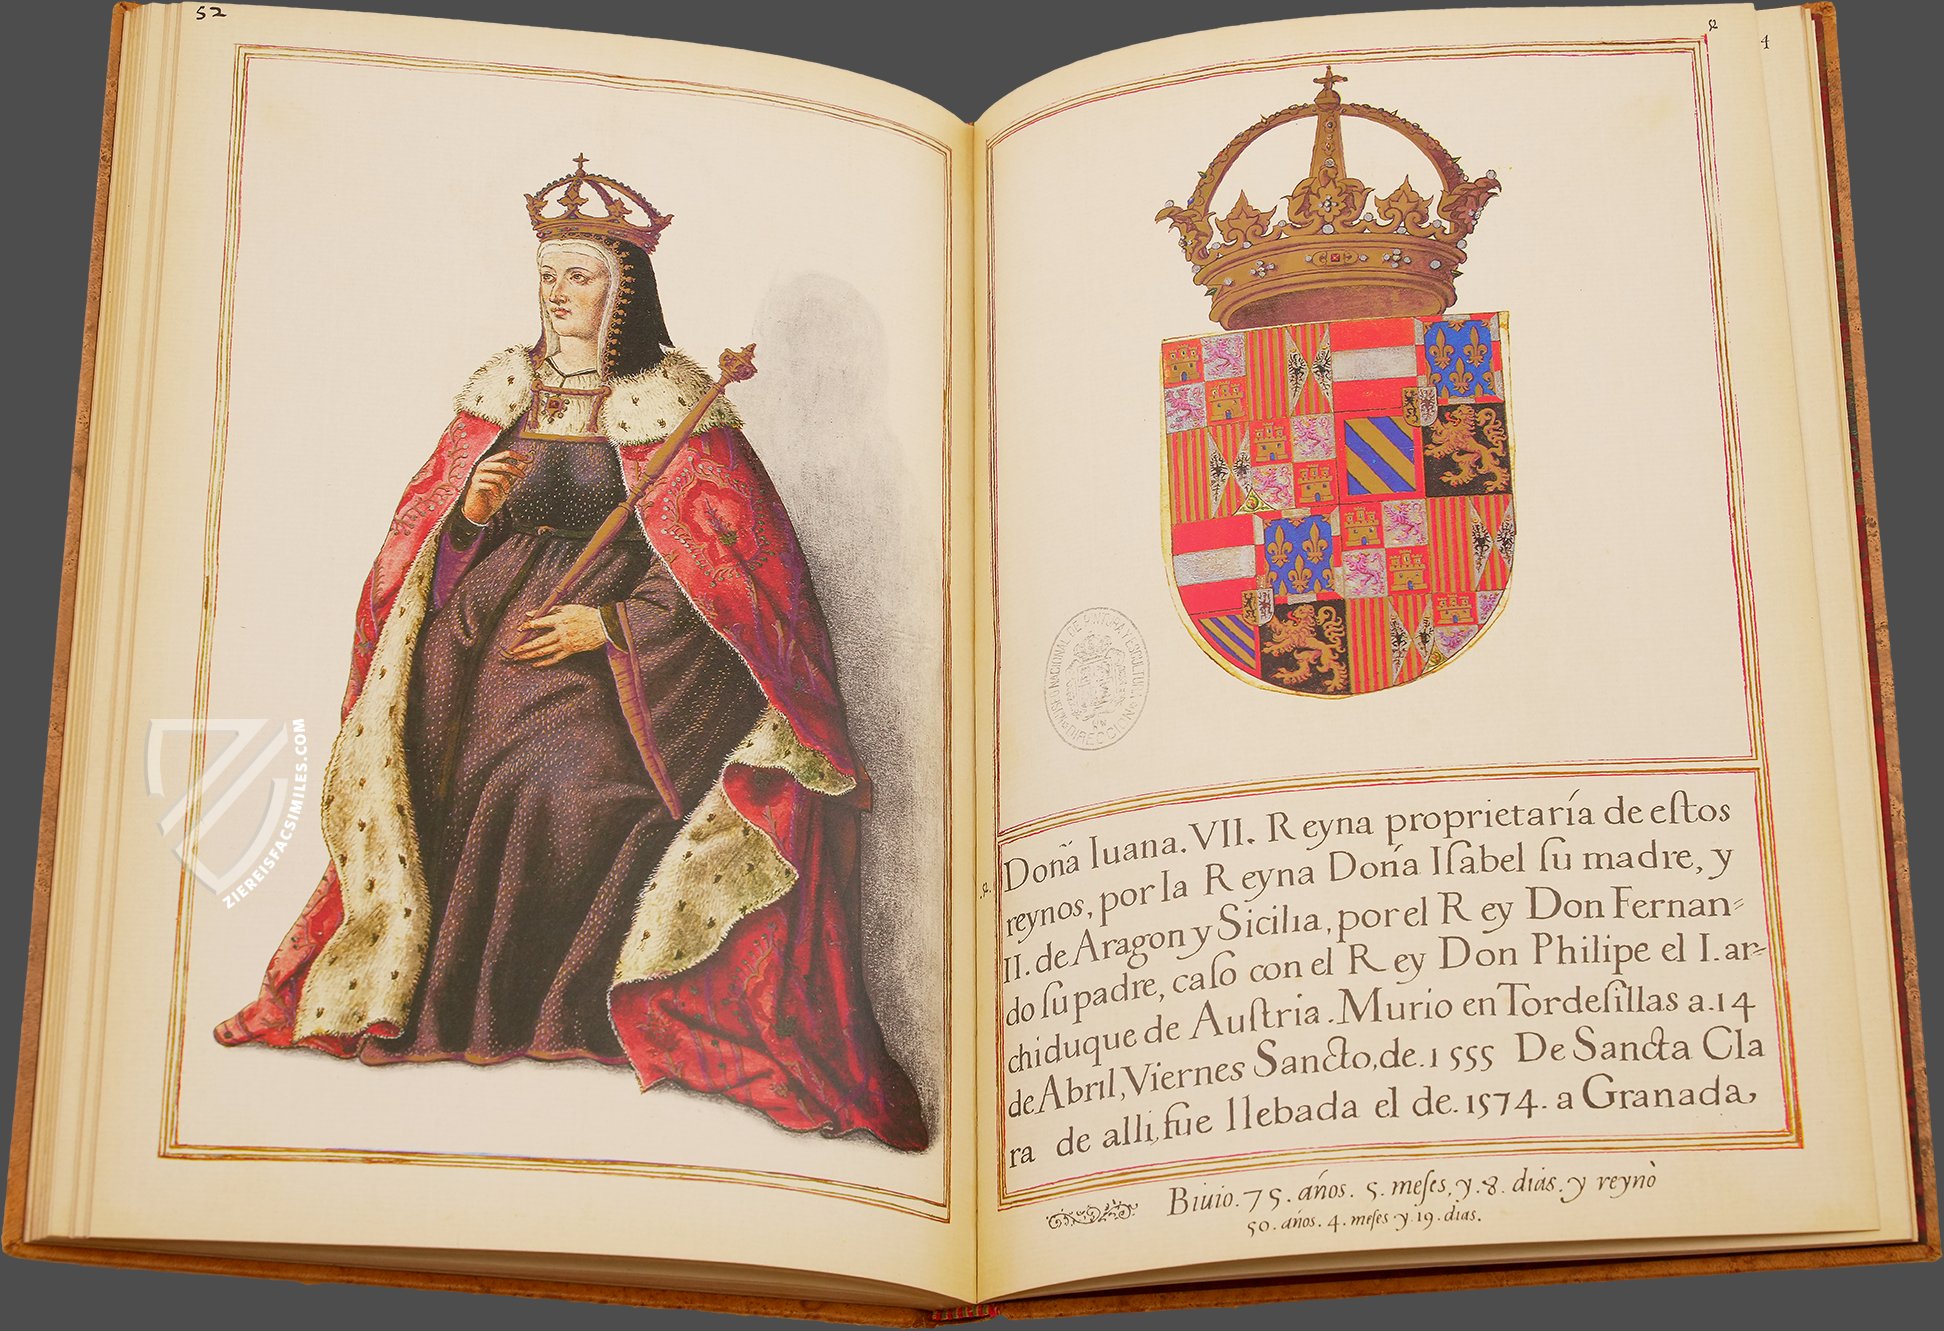 52
52
4
Doña Iuana. VII. Reyna proprietaría de eſtos
reynos, por la Reyna Doña Iſabel ſu madre, y
II. de Aragon y Sicilia, por el Rey Don Fernan=
do ſu padre, caſo con el Rey Don Philipe el I. ar=
chiduque de Auſtria. Murio en Tordeſillas a. 14
de Abril, Viernes Sancto, de. 1555 De Sancta Cla
ra de alli, fue llebada el de. 1574. a Granada,
.52.
Biuio. 75. años. 5. meſes, y. 8. dias. y reynò
50. años. 4. meſes y. 19. dias.
ZIEREISFACSIMILES.COM
DIRECCION